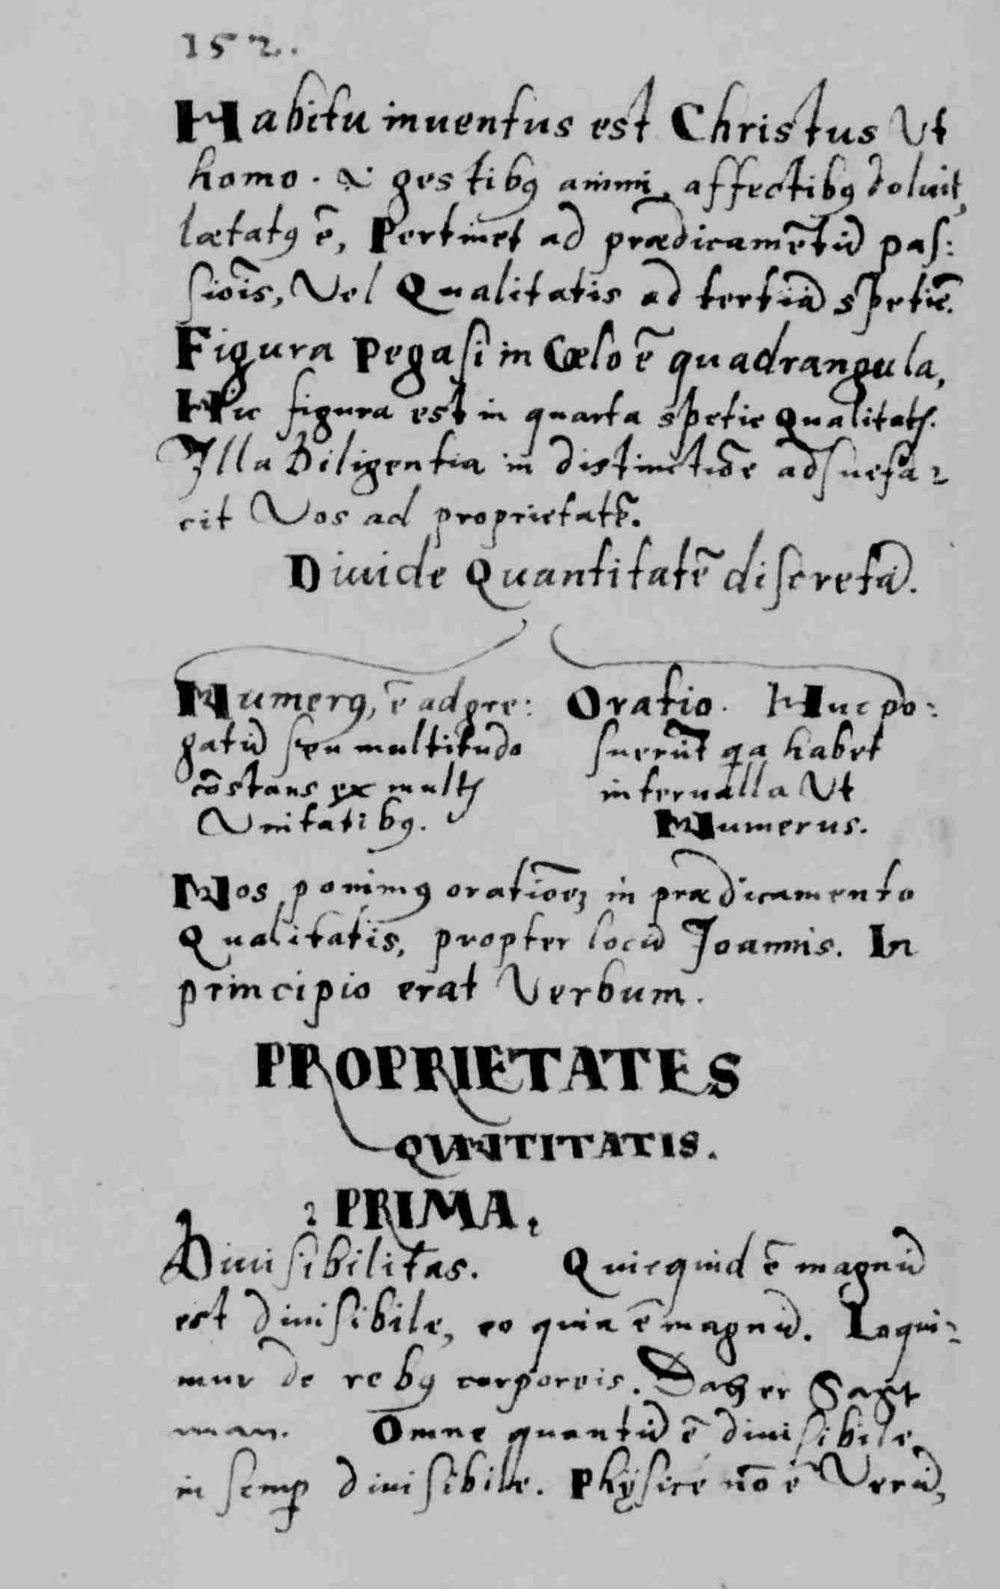 152.
Habitu inuentus est Christus Vt
homo. & gestibꝰ animi, affectibꝰ doluit,
lætatꝰ ē, Pertinet ad prædicamētū pas:
siōis, Vel Qualitatis ad tertiā spetiē.
Figura Pegasi in Cœlo ē quadrangula,
Hic figura est in quarta spetie Qualitatꝭ.
Illa Diligentia in distinctiōe adsuefa-
cit Vos ad proprietatē.
Diuide Quantitatē discretā.
Numerꝰ, ē adgre: 
gatū seu multitudo
cōstans ex multꝭ
Vnitatibꝰ.
Oratio. Huc po:
suerūt qa habet
interualla Vt
Numerus.
Nos ponimꝰ oratiōeꝫ in prædicamento
Qualitatis, propter locū Joannis. In
principio erat Verbum.
PROPRIETATES
QVANTITATIS.
PRIMA.
Diuisibilitas. Quicquid ē magnū
est diuisibile, eo quia ē magnū. Loqui-
mur de rebꝰ corporeis. Daher Sagt
man. Omne quantū ē diuisibile
in semꝑ diuisibile. Physicè nō ē Verū,